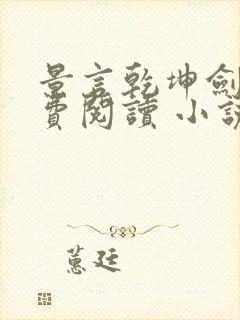 景言乾坤劍
費閱讀 小說
蕙廷